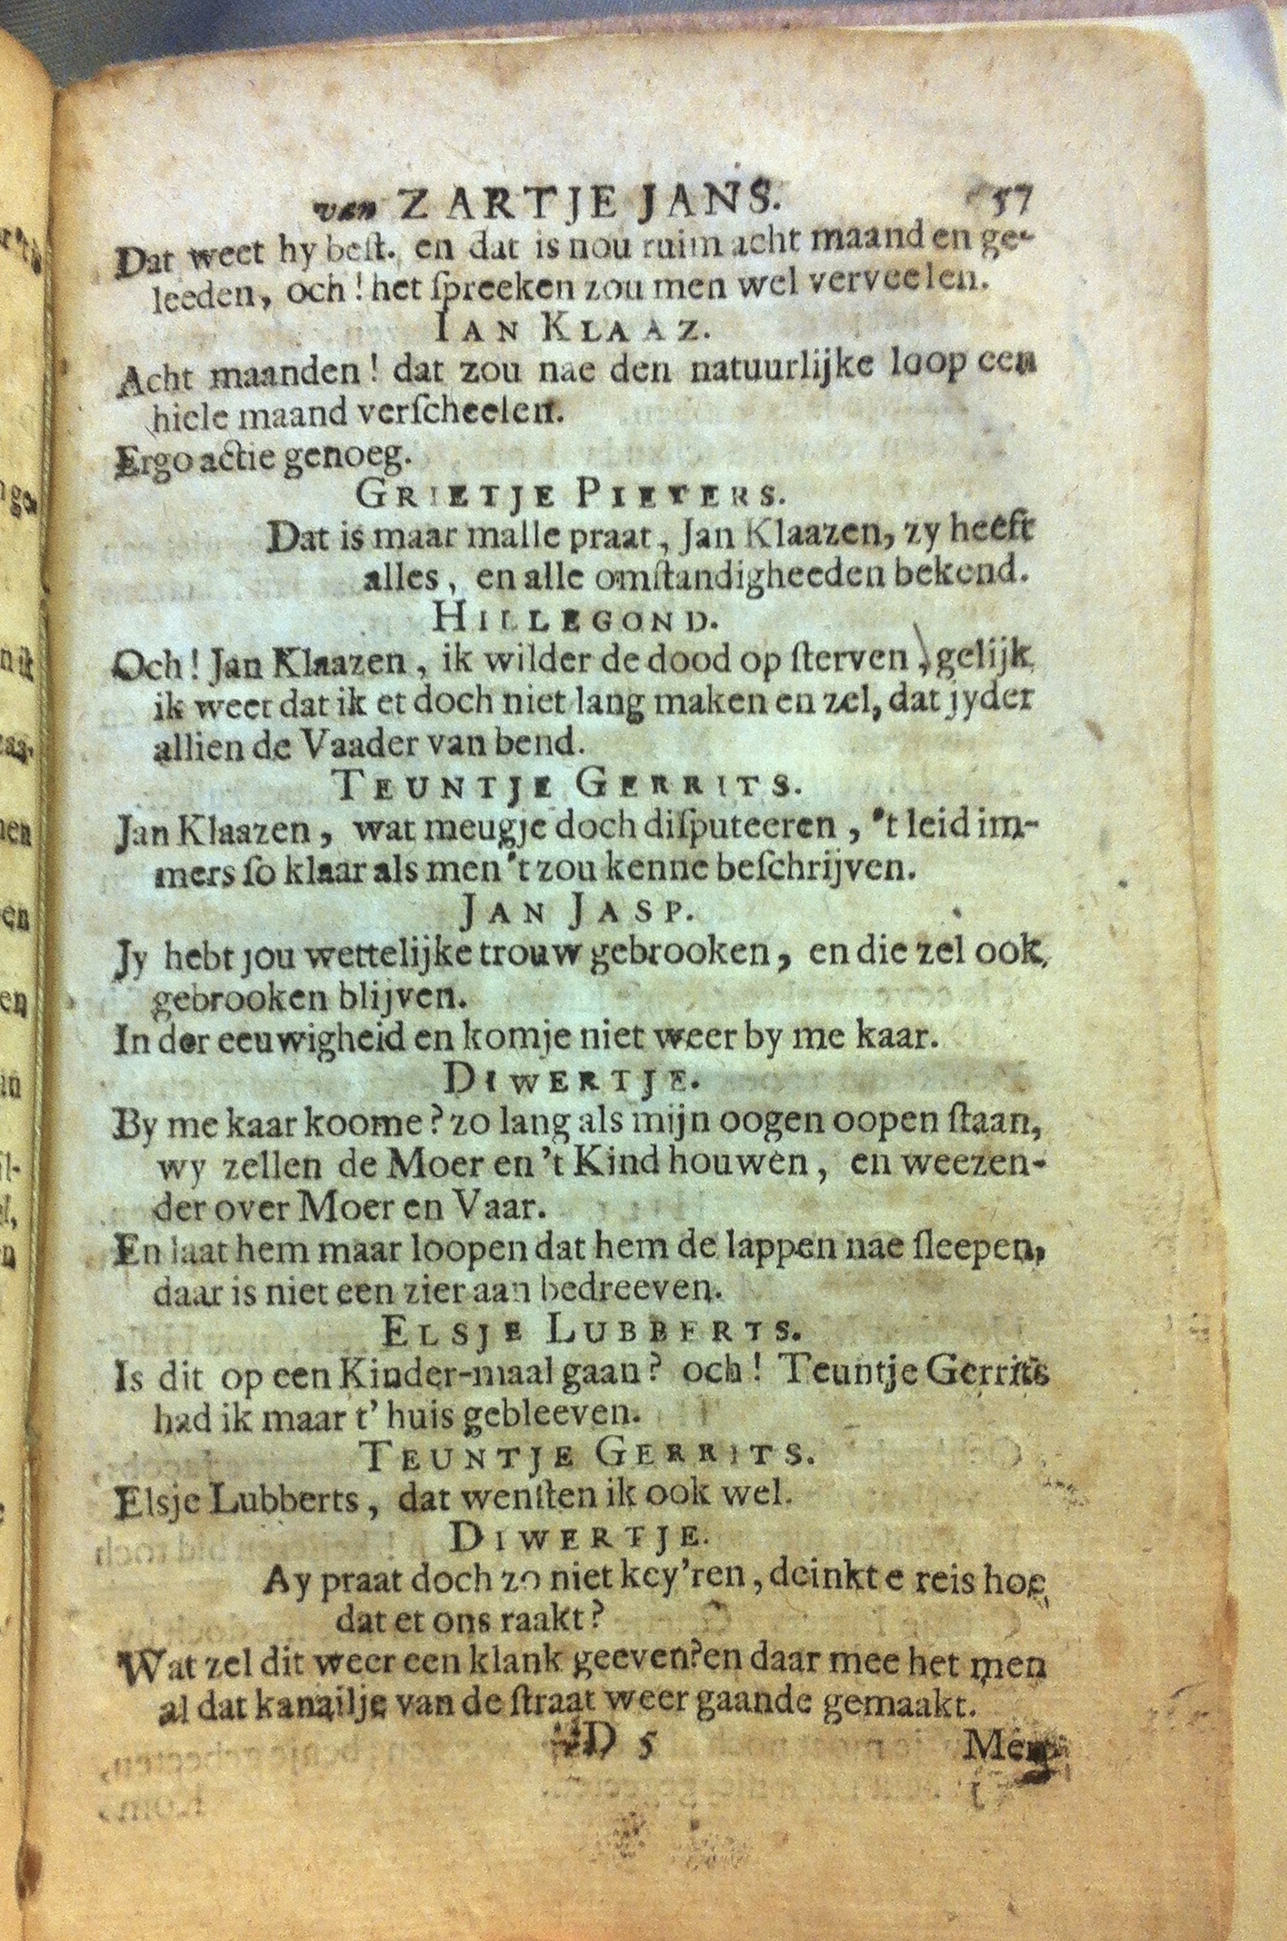 van ZARTJE JANS. 57
Dat weet hy beſt. en dat is nou ruim acht maanden ge-
leeden, och! het ſpreeken zou men wel verveelen.
IAN KLAAZ.
Acht maanden! dat zou nae den natuurlijke loop een
hiele maand verſcheelen.
Ergo actie genoeg.
GRIETJE PIETERS.
Dat is maar malle praat, Jan Klaazen, zy heeft
alles, en alle omſtandigheeden bekend.
HILLEGOND.
Och! Jan Klaazen, ik wilder de dood op ſterven, gelijk
ik weet dat ik et doch niet lang maken en zel, dat jyder
allien de Vaader van bend.
TEUNTJE GERRITS.
Jan Klaazen, wat meugje doch diſputeeren, 't leid im-
mers ſo klaar als men 't zou kenne beſchrijven.
JAN JASP.
Jy hebt jou wettelijke trouw gebrooken, en die zel ook
gebrooken blijven.
In der eeuwigheid en komje niet weer by me kaar.
DIWERTJE.
By me kaar koome? zo lang als mijn oogen oopen ſtaan,
wy zellen de Moer en 't Kind houwen, en weezen-
der over Moer en Vaar.
En laat hem maar loopen dat hem de lappen nae ſleepen,
daar is niet een zier aan bedreeven.
ELSJE LUBBERTS.
Is dit op een Kinder-maal gaan? och! Teuntje Gerrits
had ik maar t' huis gebleeven.
TEUNTJE GERRITS.
Elsje Lubberts, dat wenſten ik ook wel.
DIWERTJE.
Ay praat doch zo niet key'ren, deinkt e reis hoe
dat et ons raakt?
Wat zel dit weer een klank geeven? en daar mee het men
al dat kanailje van de ſtraat weer gaande gemaakt.
D 5